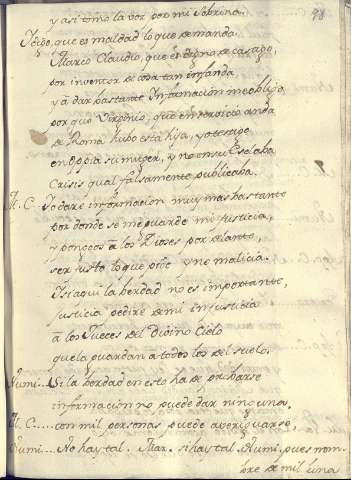 98
y asi tomo la voz por mi sobrina.
Y digo, que es maldad lo que demanda
Marco Claudio, que es digno de castigo,
por inventor de cosa tan infanda
y a dar bastante informacion me obligo,
por que Virginio, que en servicio anda
de Roma hubo esta hija, yo testigo
en propia su muger, y no en su esclaba
Crisis qual falsamente publicaba.
M. C. Yo daré informacion muy mas bastante
por donde se me guarde mi justicia,
y pongo a los Dioses por delante,
ser justo lo que pido y no malicia.
Y si aqui la berdad no es importante,
justicia pediré de mi injusticia
a los Jueces del Divino Cielo
que la guardan a todos los del suelo.
Numi... Si la berdad en esto ha de probarse
informacion no puede dar ninguna.
M. C..... con mil personas puede averiguarse.
Numi.... No hay tal. Mar. si hay tal. Numi, pues nom-
bre de mil una